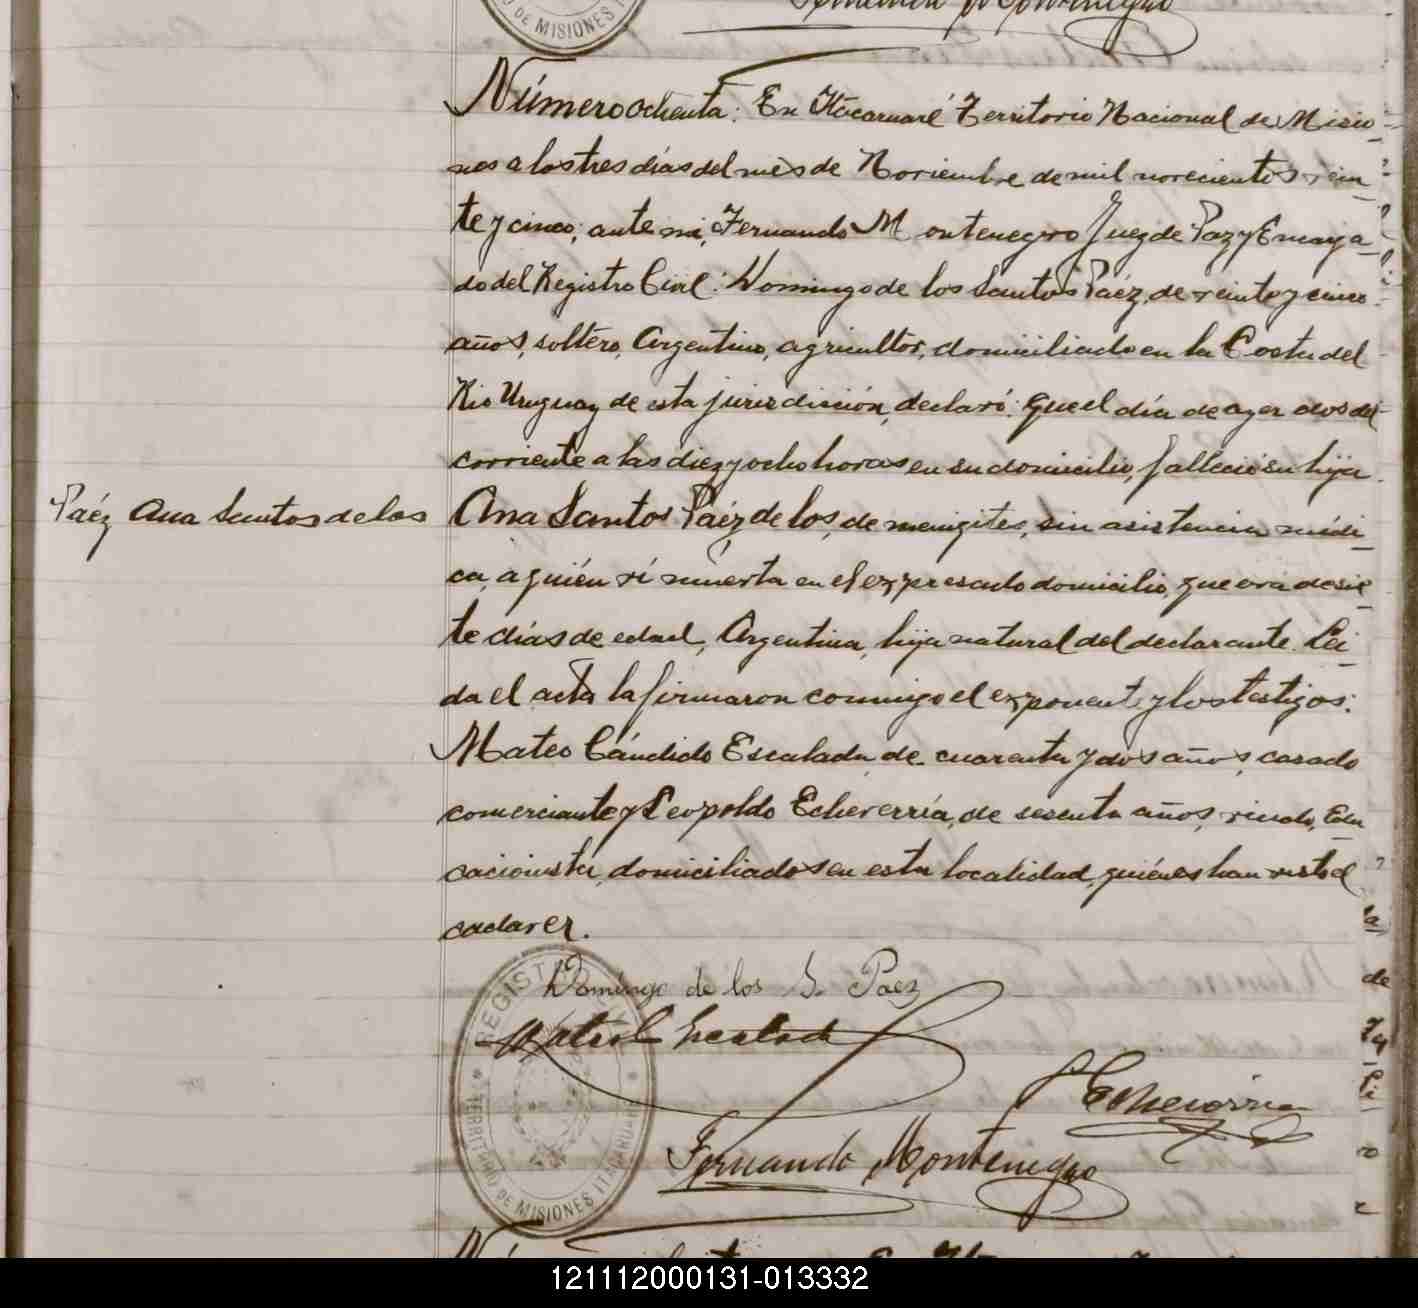 DE MISIONES
Fernando Montenegro
Número ochenta: En Itacaruaré Territorio Nacional de Misio-
nes a los tres días del mes de Noviembre de mil novecientos vein-
te y cinco; ante mi, Fernando Montenegro Juez de Paz y Encarga-
do del Registro Civil: Domingo de los Santos Páez, de veinte y cinco
años, soltero, Argentino, agricultor, domiciliado en la Costa del
Rio Uruguay de esta jurisdicción, declaró: Que el día de ayer dos del
corriente a las diez y ocho horas en su domicilio, falleció su hija
Páez Ana Santos de los
Ana Santos Páez de los, de meningites, sin asistencia médi-
ca, a quién ví muerta en el expresado domicilio, que era de sie-
te días de edad, Argentina, hija natural del declarante. Leí-
da el acta la firmaron conmigo el exponente y los testigos:
Mateo Cándido Escalada, de cuarenta y dos años, casado
comerciante y Leopoldo Echeverría, de sesenta años, viudo, Edu-
cacionista, domiciliados en esta localidad, quiénes han visto el
cadaver.
Domingo de los S. Paez
Mateo C Escalada
L Echeverria
Fernando Montenegro
REGISTRO
TERRITORIO DE MISIONES ITACARUARE
la
de
121112000131-013332